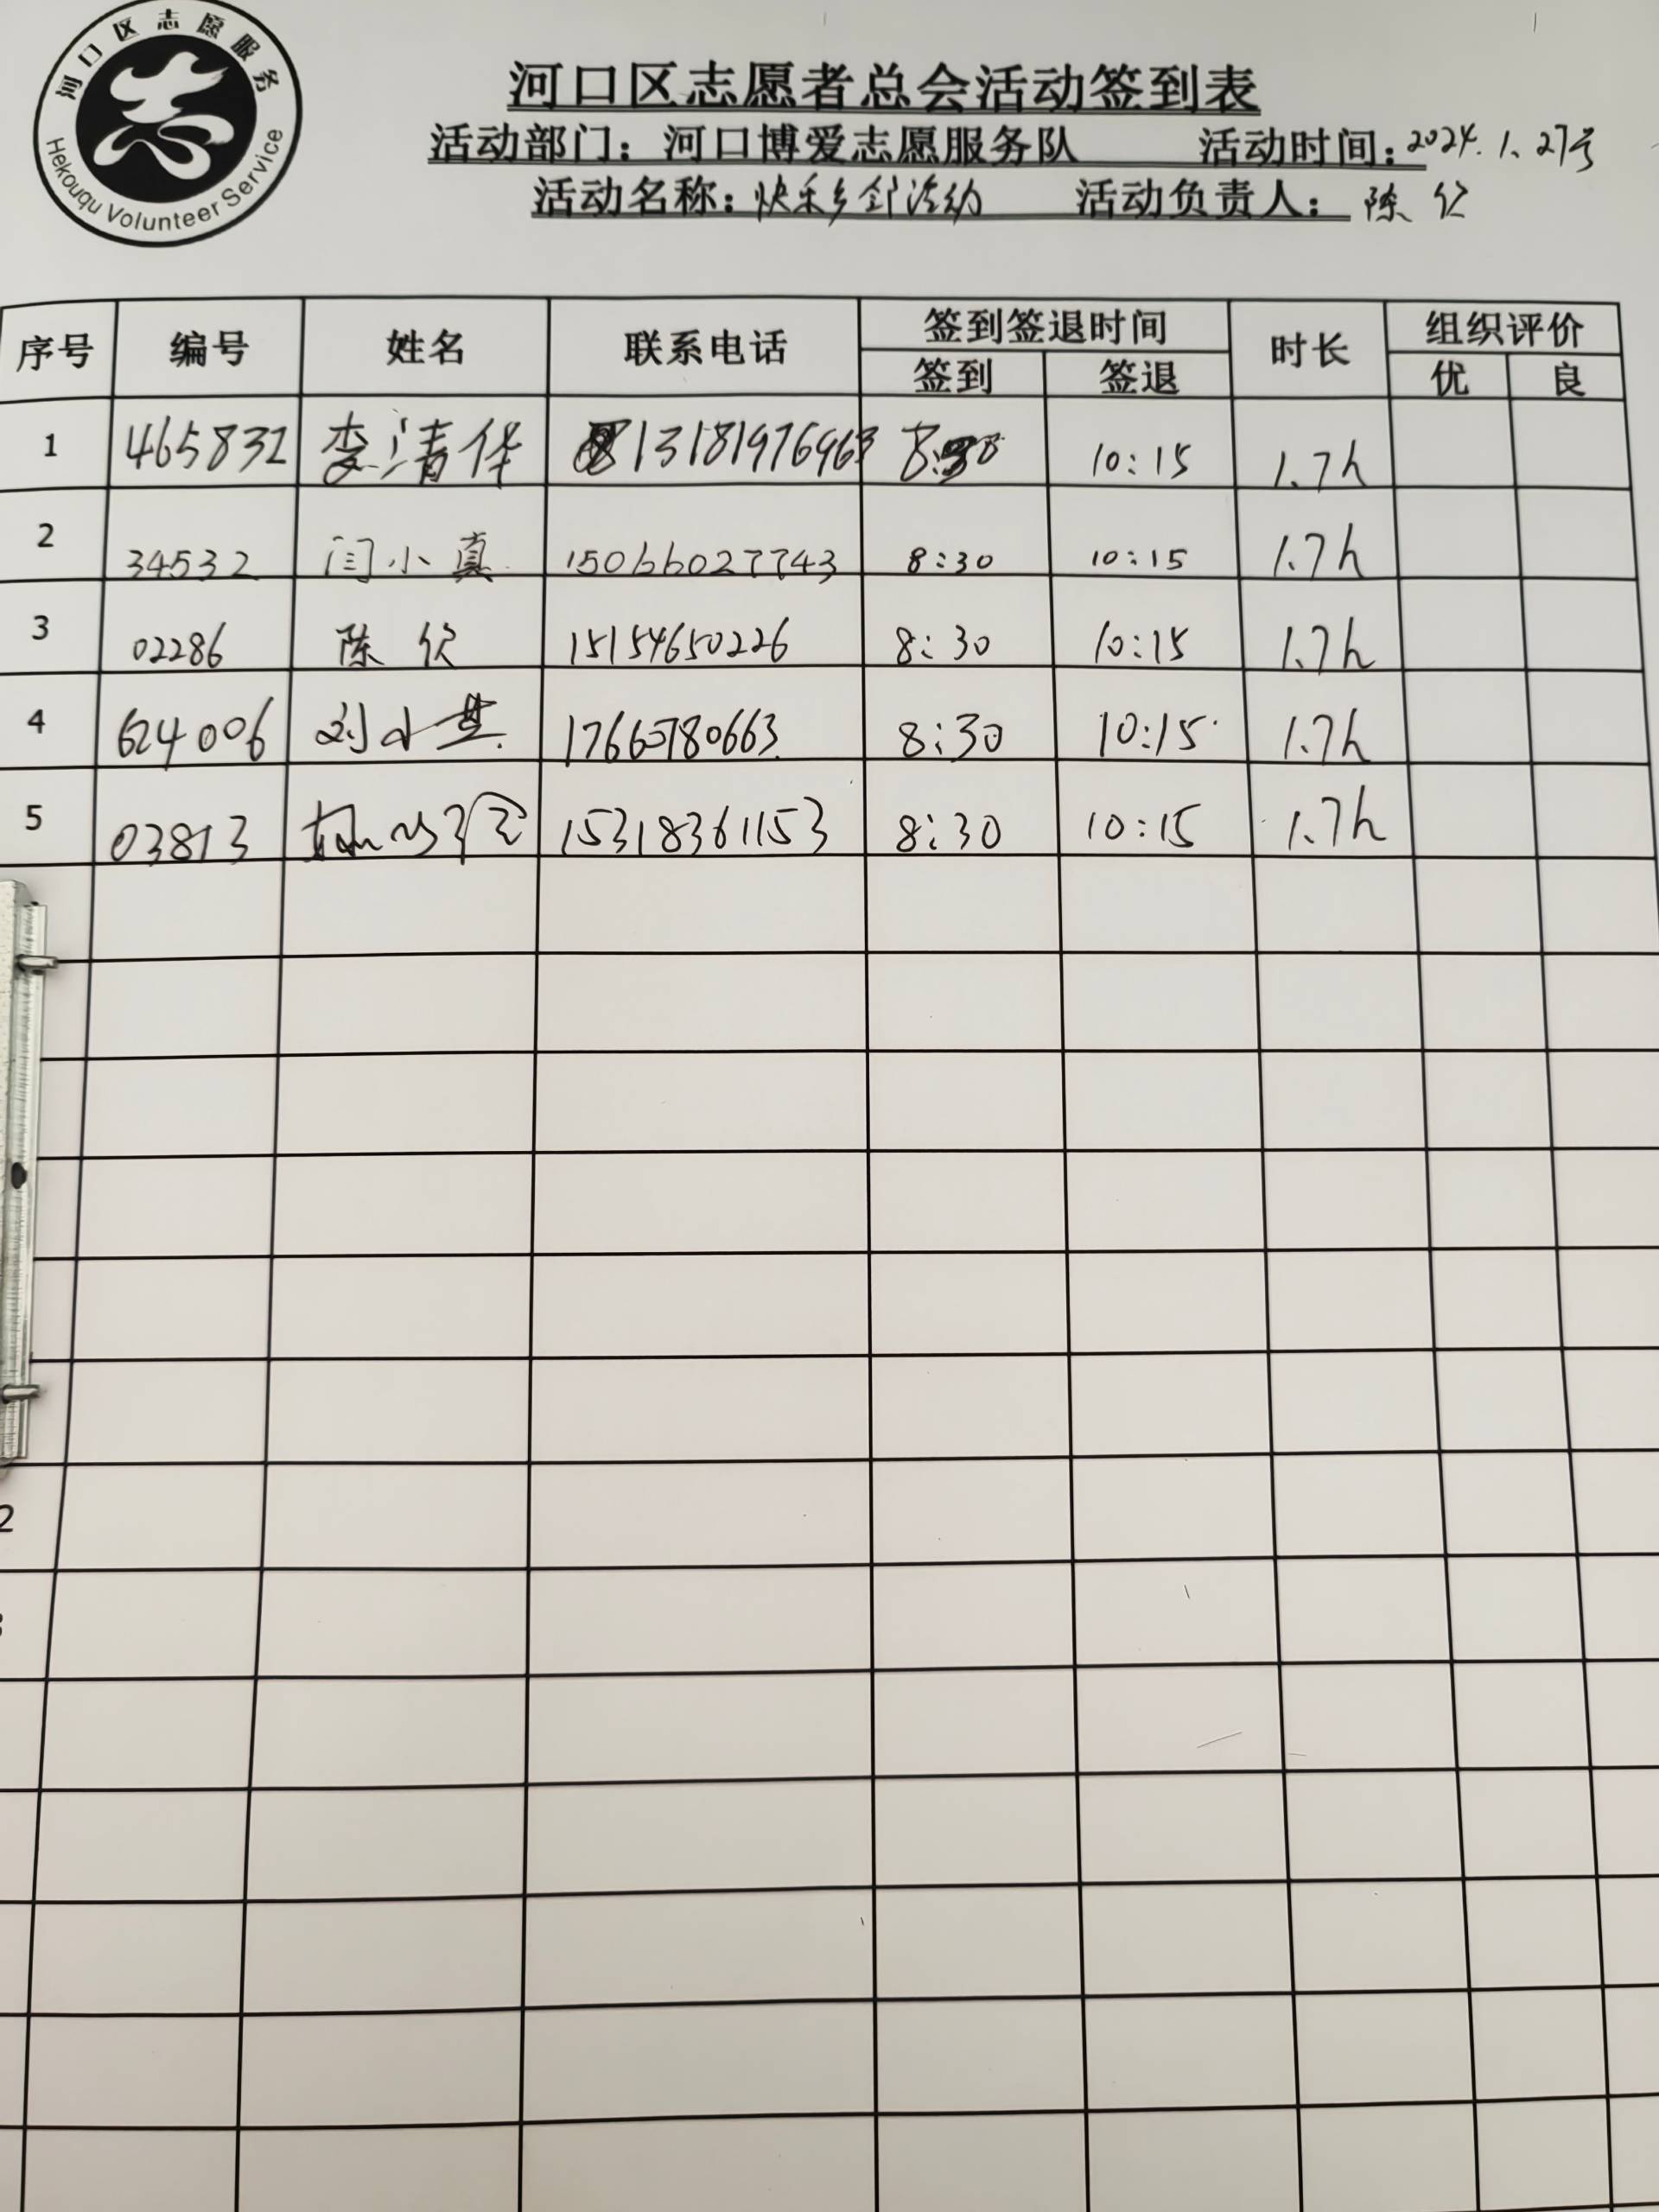 河口区志愿服务
Hekouqu Volunteer Service
河口区志愿者总会活动签到表
活动部门：河口博爱志愿服务队 活动时间：2024.1.27号
活动名称：快乐乡邻 活动负责人：陈
序号 编号 姓名 联系电话 签到签退时间 时长 组织评价
签到 签退 优 良
1 465832 李清华 13181976963 8:30 10:15 1.7h
2 34532 闫小真 15066027743 8:30 10:15 1.7h
3 02286 陈 15154650226 8:30 10:15 1.7h
4 624006 刘小 8:30 10:15 1.7h
5 03813 15318361153 8:30 10:15 1.7h
2